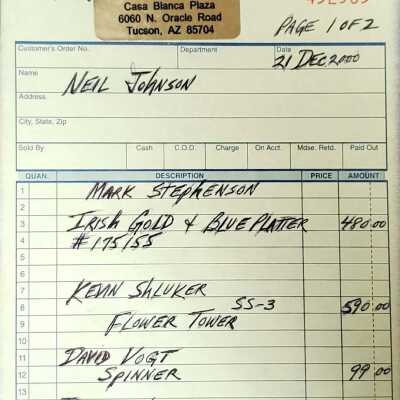 Casa Blanca Plaza
6060 N. Oracle Road
Tucson, AZ 85704
PAGE 1 OF 2
Customer's Order No. Department Date
21 DEC 2000
Name NEIL JOHNSON
Address
City, State, Zip
Sold By Cash C.O.D. Charge On Acct. Mdse. Retd. Paid Out
QUAN. DESCRIPTION PRICE AMOUNT
1 MARK STEPHENSON
2
3 IRISH GOLD & BLUE PLATTER 480.00
4 #175155
5
6
7 KEVIN SHLUKER
8 SS-3 590.00
9 FLOWER TOWER
10
11 DAVID VOGT
12 SPINNER 99.00
13